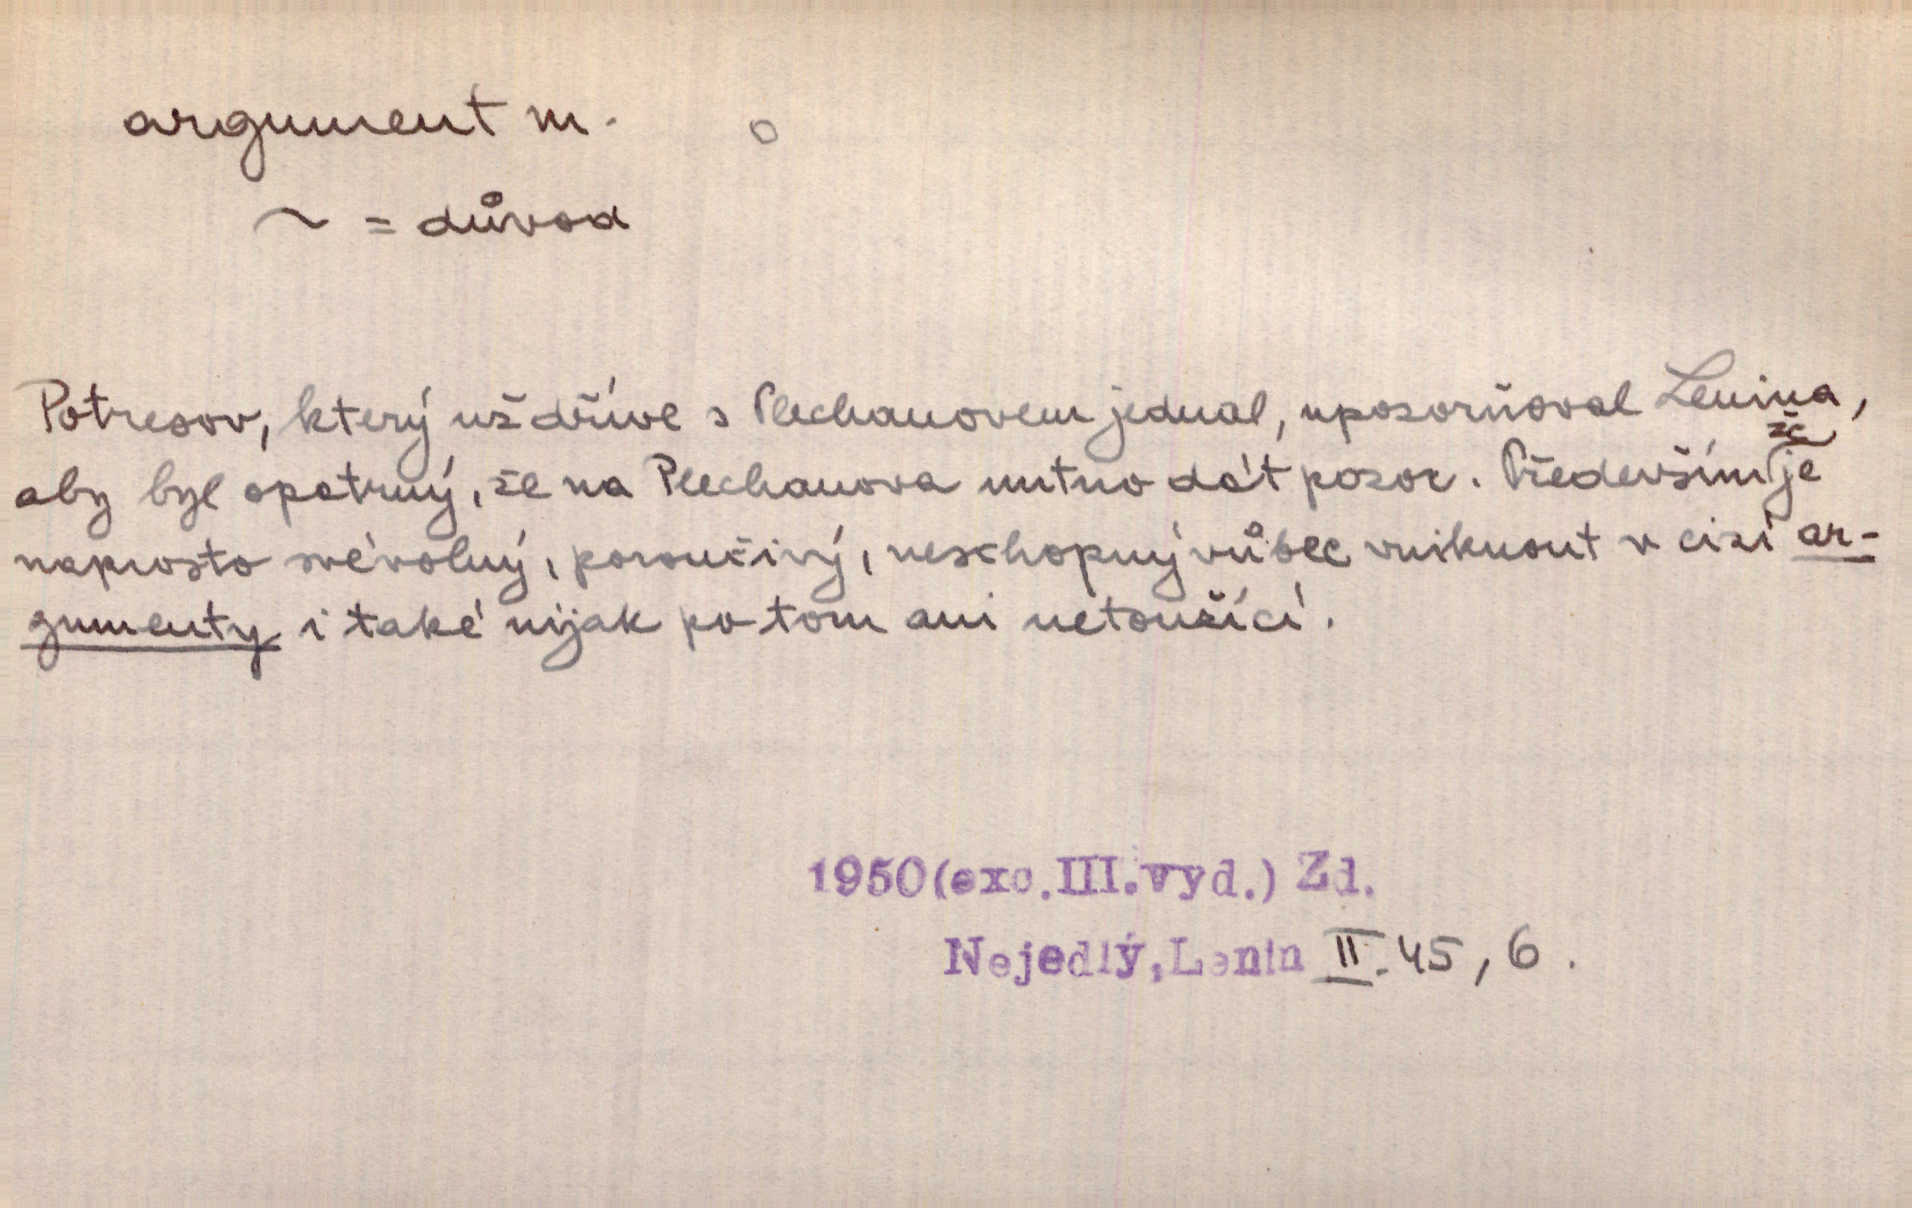 argument m. o
~ = důvod
Potresov, který už dříve s Plechanovem jednal, upozorňoval Lenina,
že
aby byl opatrný, že na Plechanova nutno dát pozor. Především je
naprosto svévolný, poroučivý, neschopný vůbec vniknout v cizí ar-
gumenty i také nijak po tom ani netoužící.
1950(exc.III.vyd.) Zd.
Nejedlý,Lenin II. 45, 6.